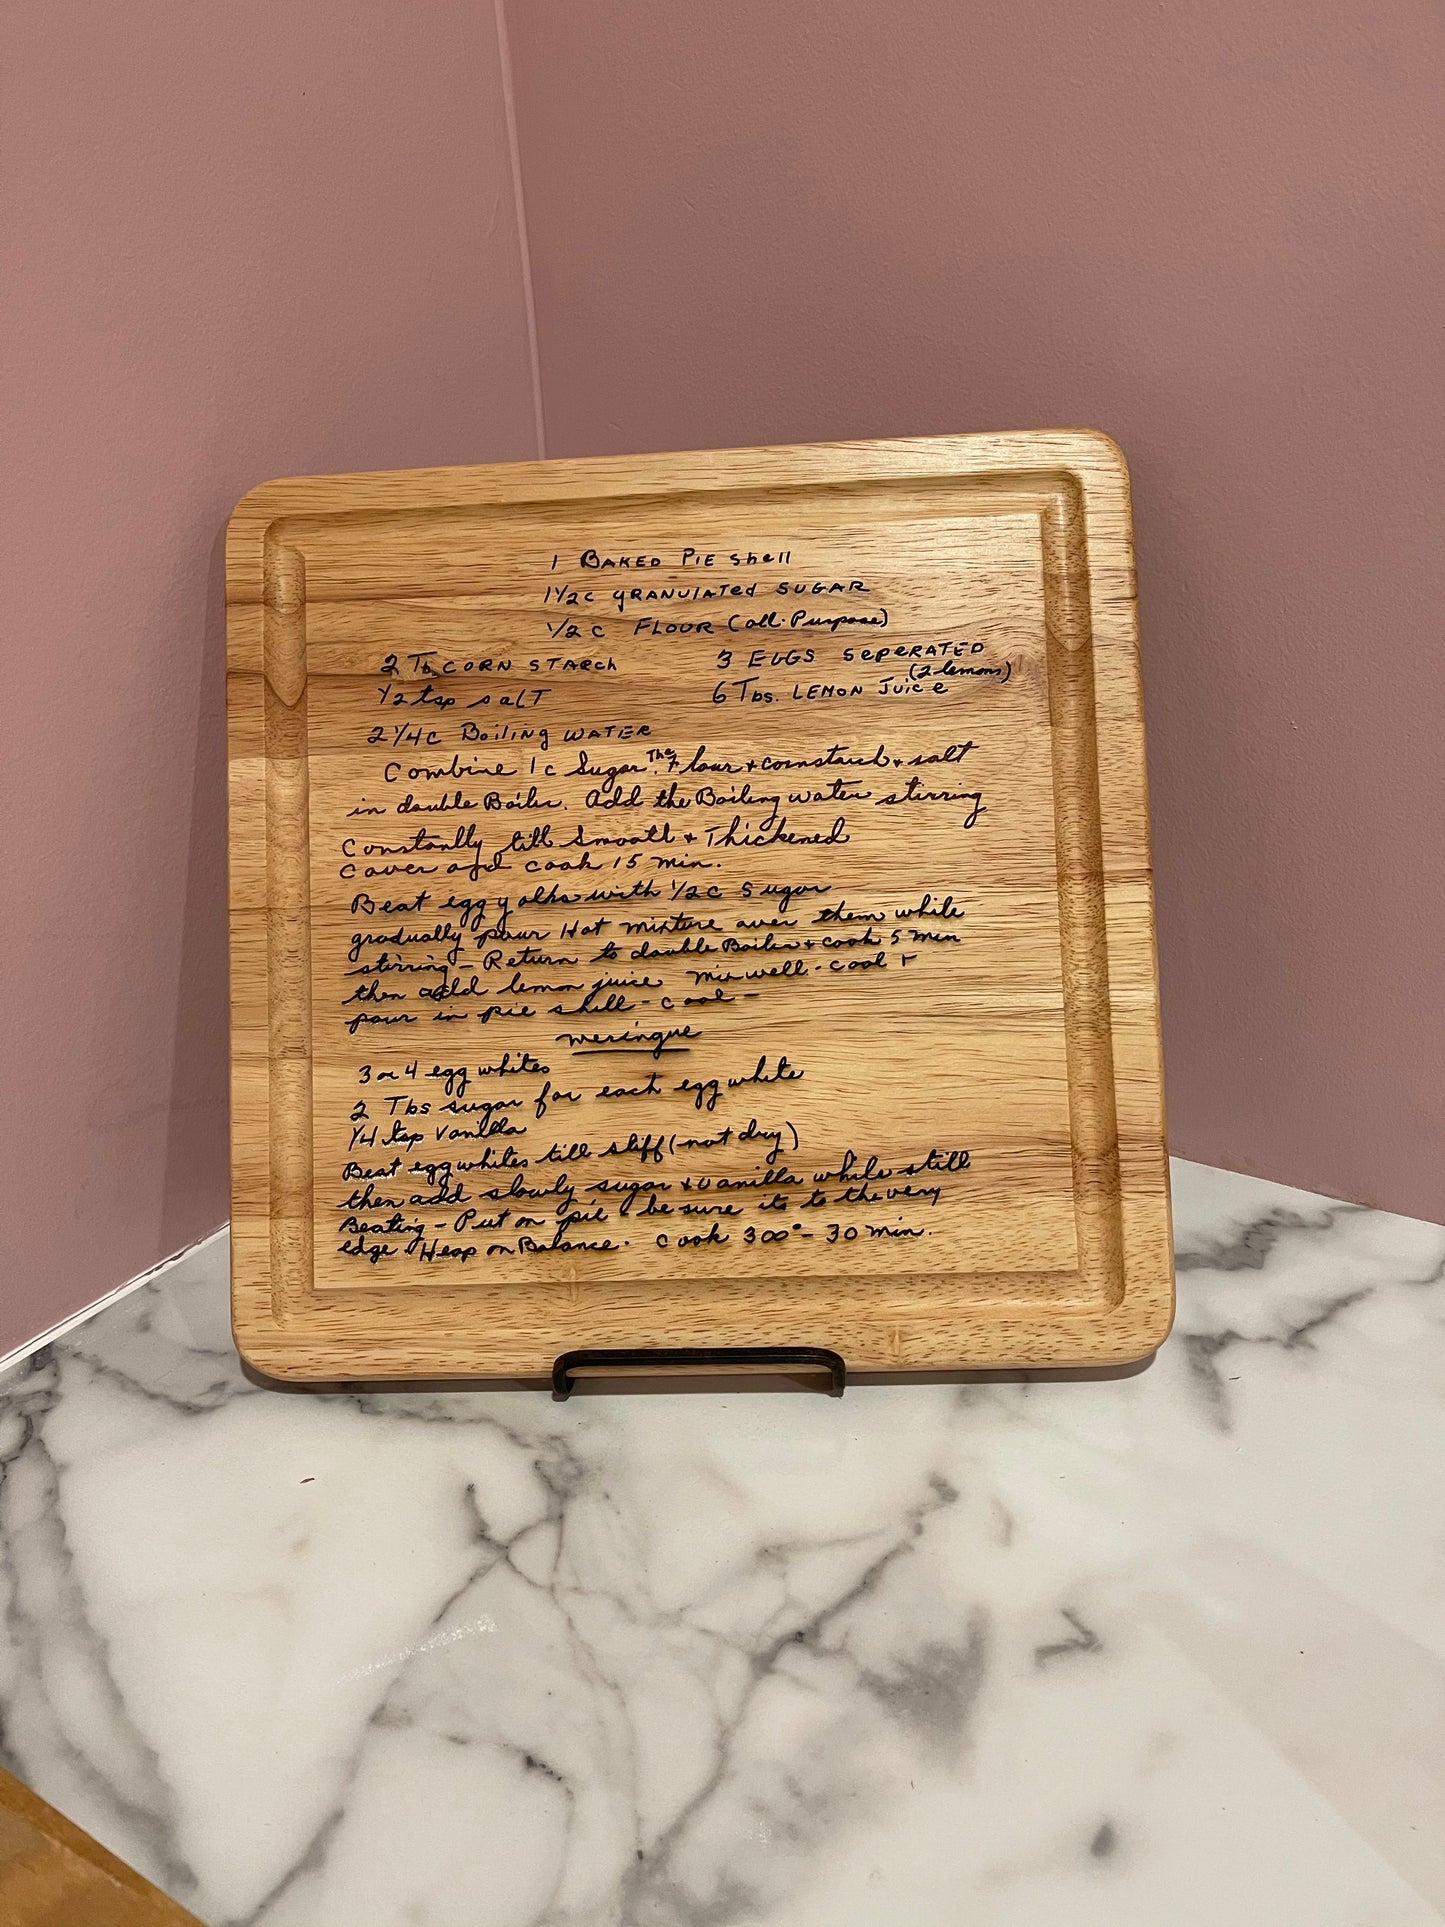 1 BAKED PIE Shell
1 1/2 c gRANUlATEd SUGAR
1/2 c FLOUR (all-Purpose)
2 Tb CORN STARCh
3 EGGS SEPERATED
1/2 tsp salt
6 Tbs. LEMON Juice (2 lemons)
2 1/4 c Boiling WATER
Combine 1 c Sugar. The Flour + cornstarch + salt
in double Boiler. Add the Boiling water stirring
Constantly till Smooth + Thickened
Cover and cook 15 min.
Beat egg yolks with 1/2 c Sugar
gradually pour Hot mixture over them while
stirring - Return to double Boiler + cook 5 min
then add lemon juice mix well - cool +
pour in pie shell - cool -
meringue
3 or 4 egg whites
2 Tbs sugar for each egg white
1/4 tsp Vanilla
Beat egg whites till stiff (not dry)
then add slowly sugar + Vanilla while still
Beating - Put on pie - be sure its to the very
edge Heap on Balance. Cook 300° - 30 min.